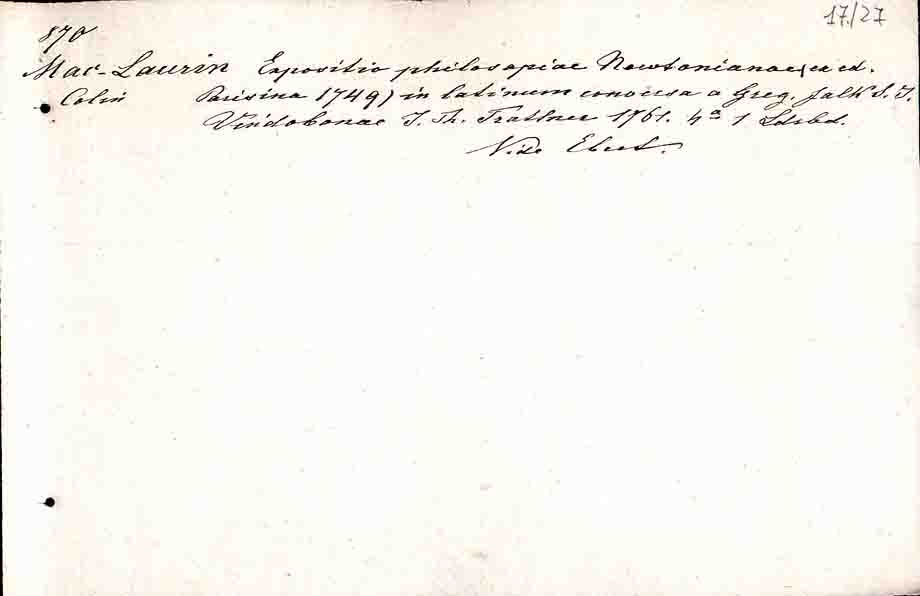 17./27
870
Mac-Laurin Expositio philosopiae Newtonianae (ex ed.
Colin Parisina 1749) in latinum conversa a Greg. Falk S. J.
Vindobonae J. Th. Trattner 1761. 4° 1 Ldrbd.
Vide